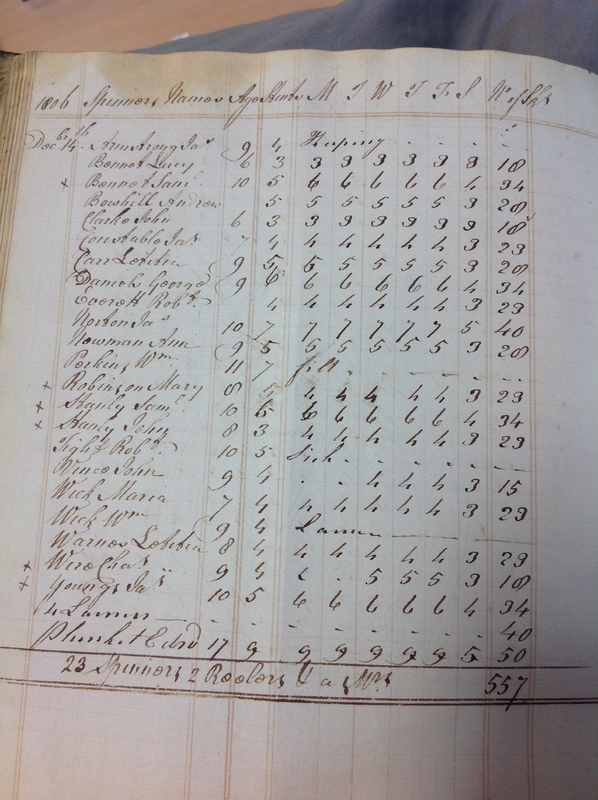 1806 Spinners Names Age Stints M T W T Fr S No of Sks
Decbr 14th Armstrong Jas 9 4 Heaping . . . .
Bennet Lucy 6 3 3 3 3 3 3 3 18
x Bennet Saml 10 5 6 6 6 6 6 4 34
Bowhill Andrew 5 5 5 5 5 5 3 28
Clarke John 6 3 3 3 3 3 3 3 18
Constable Jas 7 4 4 4 4 4 4 3 23
Carr Letitia 9 5 5 5 5 5 5 3 28
Daniels George 9 6 6 6 6 6 6 4 34
Everett Robt 4 4 4 4 4 4 3 23
Norton Jas 10 7 7 7 7 7 7 5 40
Newman Ann 9 5 5 5 5 5 5 3 28
Perkins Wm 11 7
x Robinson Mary 8 5 4 4 4 4 4 3 23
x Stanly Saml 10 5 6 6 6 6 6 4 34
x Stanly John 8 3 4 4 4 4 4 3 23
Tight Robt 10 5 Sick . - - - -
Vince John 9 4 . . 4 4 4 3 15
Wick Maria 7 4 4 4 4 4 4 3 23
Wick Wm 9 4
Warnes Letitia 8 4 4 4 4 4 4 3 23
x Wire Chas 9 4 . 5 5 5 3 18
x Youngs Jas 10 5 6 6 6 6 6 4 34
4 - - - - - - 40
Plunket Edwd 17 9 9 9 9 9 9 5 50
23 Spinners 2 Reelers & a 557